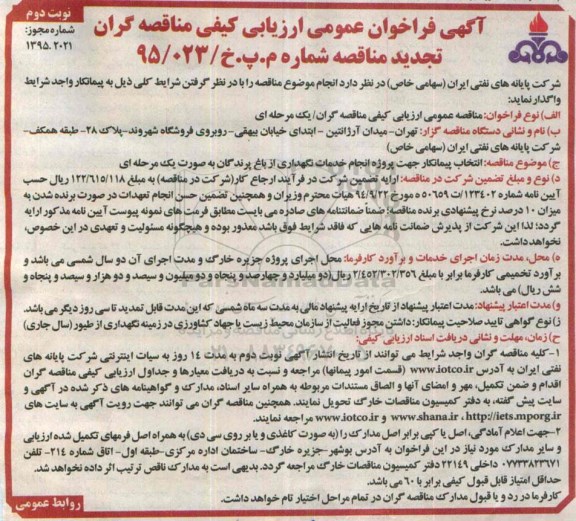 نوبت دوم
شماره مجوز:
۱۳۹۵.۲۰۲۱
آگهی فراخوان عمومی ارزیابی کیفی مناقصه گران
تجدید مناقصه شماره م.پ.خ/۹۵/۰۲۳
شرکت پایانه های نفتی ایران (سهامی خاص) در نظر دارد انجام موضوع مناقصه را با در نظر گرفتن شرایط کلی ذیل به پیمانکار واجد شرایط
واگذار نماید:
الف) نوع فراخوان: مناقصه عمومی ارزیابی کیفی مناقصه گران/ یک مرحله ای
ب) نام و نشانی دستگاه مناقصه گزار: تهران- میدان آرژانتین - ابتدای خیابان بیهقی- روبروی فروشگاه شهروند-پلاک ۲۸- طبقه همکف-
شرکت پایانه های نفتی ایران (سهامی خاص)
ج) موضوع مناقصه: انتخاب پیمانکار جهت پروژه انجام خدمات نگهداری از باغ پرندگان به صورت یک مرحله ای
د) نوع و مبلغ تضمین شرکت در مناقصه: ارایه تضمین شرکت در فرآیند ارجاع کار(شرکت در مناقصه) به مبلغ ۱۲۲/۶۱۵/۱۱۸ ریال حسب
آیین نامه شماره ۱۲۳۴۰۲/ت۵۰۶۵۹ه مورخ ۹۴/۹/۲۲ هیات محترم وزیران و همچنین تضمین حسن انجام تعهدات در صورت برنده شدن به
میزان ۱۰ درصد نرخ پیشنهادی برنده مناقصه؛ ضمناً ضمانتنامه های صادره می بایست مطابق فرمت های نمونه پیوست آیین نامه مذکور ارایه
گردد؛ لذا این شرکت از پذیرش ضمانت نامه هایی که فاقد شرایط فوق باشد معذور بوده و هیچگونه مسئولیت و تعهدی در این خصوص،
نخواهد داشت.
ه) محل، مدت زمان اجرای خدمات و برآورد کارفرما: محل اجرای پروژه جزیره خارگ و مدت اجرای آن دو سال شمسی می باشد و
برآورد تخمینی کارفرما برابر با مبلغ ۲/۴۵۲/۳۰۲/۳۵۶ ریال(دو میلیارد و چهارصد و پنجاه و دو میلیون و سیصد و دو هزار و سیصد و پنجاه و
شش ریال) می باشد.
و) مدت اعتبار پیشنهاد: مدت اعتبار پیشنهاد از تاریخ ارایه پیشنهاد مالی به مدت سه ماه شمسی که این مدت قابل تمدید تا سی روز دیگر می باشد.
ز) نوع گواهی تایید صلاحیت پیمانکار: داشتن مجوز فعالیت از سازمان محیط زیست یا جهاد کشاورزی در زمینه نگهداری از طیور (سال جاری)
ح) زمان، مهلت و نشانی دریافت اسناد ارزیابی کیفی:
۱-کلیه مناقصه گران واجد شرایط می توانند از تاریخ انتشار آگهی نوبت دوم به مدت ۱۴ روز به سیات اینترنتی شرکت پایانه های
نفتی ایران به آدرس www.iotco.ir (قسمت امور پیمانها) مراجعه و نسبت به دریافت معیارها و جداول ارزیابی کیفی مناقصه گران
اقدام و ضمن تکمیل، مهر و امضای آنها و الصاق مستندات مربوطه به همراه سایر اسناد، مدارک و گواهینامه های ذکر شده در آگهی و
سایت پیش گفته، به دفتر کمیسیون مناقصات خارگ تحویل نمایند. همچنین مناقصه گران می توانند جهت رویت آگهی به سایت های
www.shana.ir ، http://iets.mporg.ir و www.iotco.ir مراجعه نمایند.
۲-جهت اعلام آمادگی، اصل یا کپی برابر اصل مدارک را (به صورت کاغذی و یا بر روی سی دی) به همراه اصل فرمهای تکمیل شده ارزیابی
و سایر مدارک مورد نیاز در این فراخوان به آدرس بوشهر-جزیره خارگ- ساختمان اداره مرکزی-طبقه اول- اتاق شماره ۲۱۴- تلفن
۰۷۷۳۳۸۲۳۶۷۱ داخلی ۲۲۱۴۹ دفتر کمیسیون مناقصات خارگ مراجعه گردد. بدیهی است به مدارک ناقص ترتیب اثر داده نخواهد شد.
حداقل امتیاز قابل قبول کیفی برابر با ۶۰ می باشد.
کارفرما در رد و یا قبول مدارک مناقصه گران در تمام مراحل اختیار تام خواهد داشت.
روابط عمومی